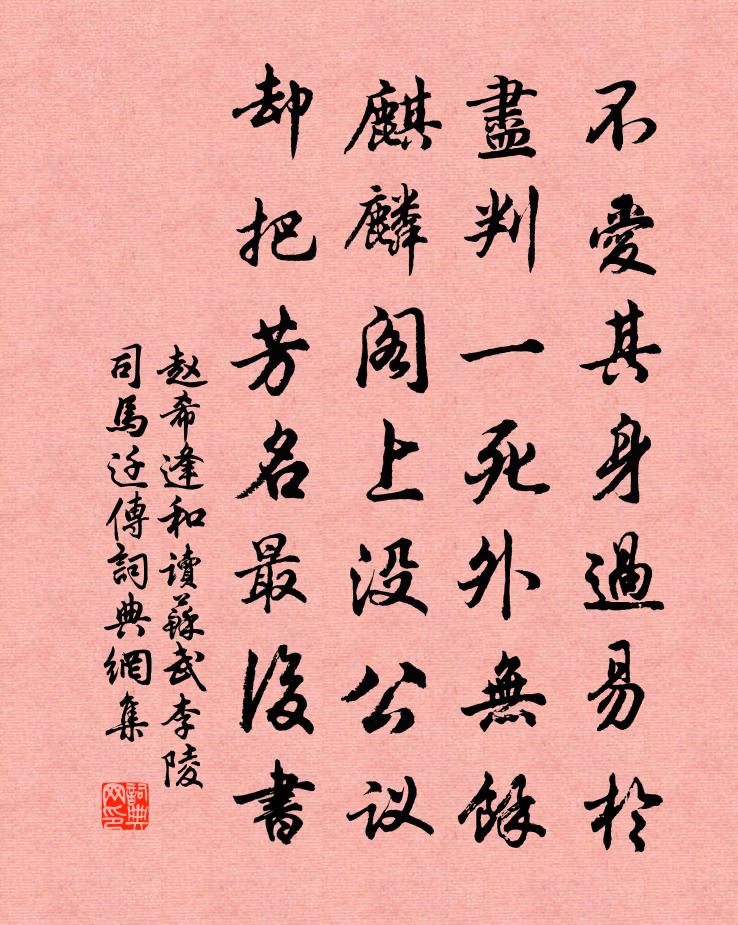 不愛其身過易於
盡判一死外無餘
麒麟閣上没公议
却把芳名最後書
赵希逢和讀蘇武李陵
司馬迁傳詞典網集
詞典
网印